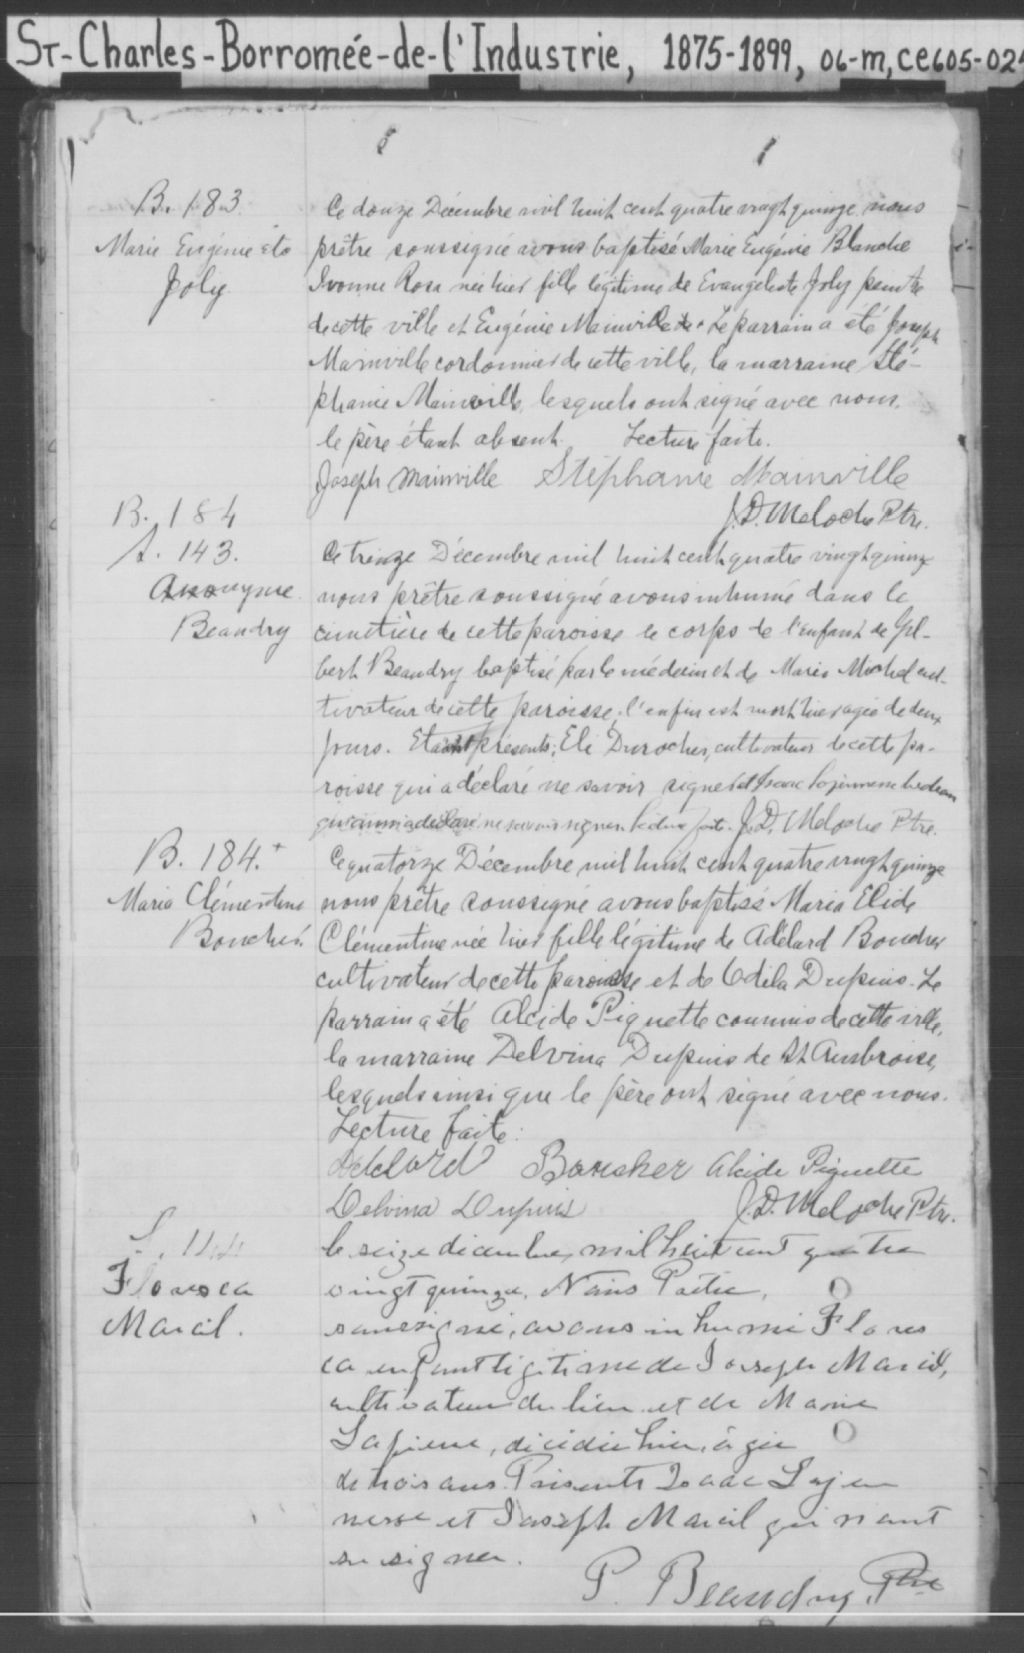 St-Charles-Borromée-de-l'Industrie, 1875-1899, 06-m, CE605-02
B. 183
Marie Eugénie etc
Joly
Ce douze Décembre mil huit cent quatre vingt quinze nous
prêtre soussigné avons baptisé Marie Eugénie Blanche
Ivonne Rosa née hier fille légitime de Evangeliste Joly peintre
de cette ville et Eugénie Mainville. Le parrain a été Joseph
Mainville cordonnier de cette ville, la marraine Sté-
phanie Mainville, lesquels ont signé avec nous,
le père étant absent. Lecture faite.
Joseph Mainville Stéphanie Mainville
J.D. Meloche Ptre.
B. 184
S. 143.
Anonyme
Beaudry
Ce treize Décembre mil huit cent quatre vingt quinze
nous prêtre soussigné avons inhumé dans le
cimetière de cette paroisse le corps de l'enfant de Gil-
bert Beaudry baptisé par le médecin et de Marie Michel cul-
tivateur de cette paroisse. l'enfin est mort hier agée de deux
jours. Etaient présents; Eli Durocher, cultivateur de cette pa-
roisse qui a déclaré ne savoir signer et Isaac Lajeunesse bedeau
qui aussi a déclaré ne savoir signer. Lecture faite. J.D. Meloche Ptre.
B. 184.+
Maria Clémentine
Boucher
Ce quatorze Décembre mil huit cent quatre vingt quinze
nous prêtre soussigné avons baptisé Maria Elide
Clémentine née hier fille légitime de Adélard Boucher
cultivateur de cette paroisse et de Odila Dupuis. Le
parrain a été Alcide Piquette commis de cette ville,
la marraine Delvina Dupuis de St Ambroise,
lesquels ainsi que le père ont signé avec nous.
Lecture faite:
Adelard Bousher Alcide Piquette
Delvina Dupuis J.D. Meloche Ptre.
S. 144
Floresca
Marcil.
le seize décembre, mil huit cent quatre
vingt quinze, Nous Prêtre,
soussigné, avons inhumé Flores
ca enfant légitime de Joseph Marcil,
cultivateur du lieu et de Marie
Lapierre, décédée hier, âgée
de trois ans. Présents Isaac Lajeu
nesse et Joseph Marcil qui n'ont
su signer.
P. Beaudry, Ptre